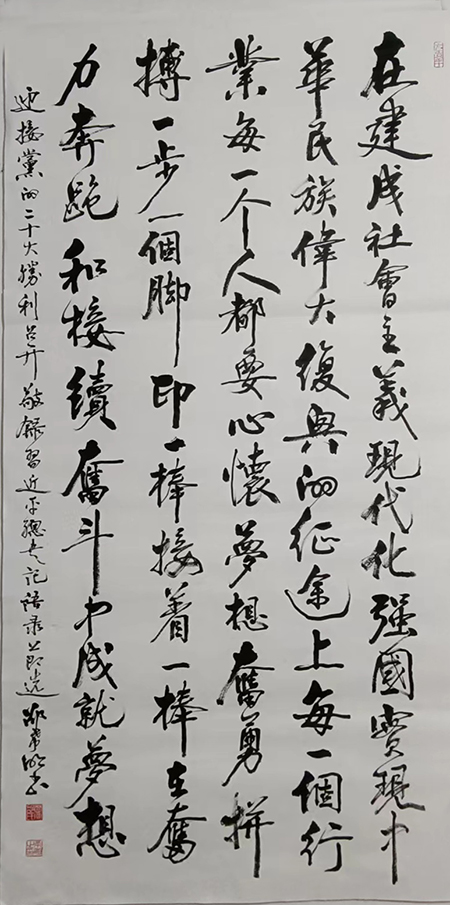 在建成社會主義現代化强國實現中
華民族偉大復興的征途上每一個行
業每一个人都要心懷夢想奮勇拼
搏一步一個脚印一棒接着一棒在奮
力奔跑和接續奮斗中成就夢想
迎接黨的二十大勝利召开敬錄習近平總書記語录公郎選